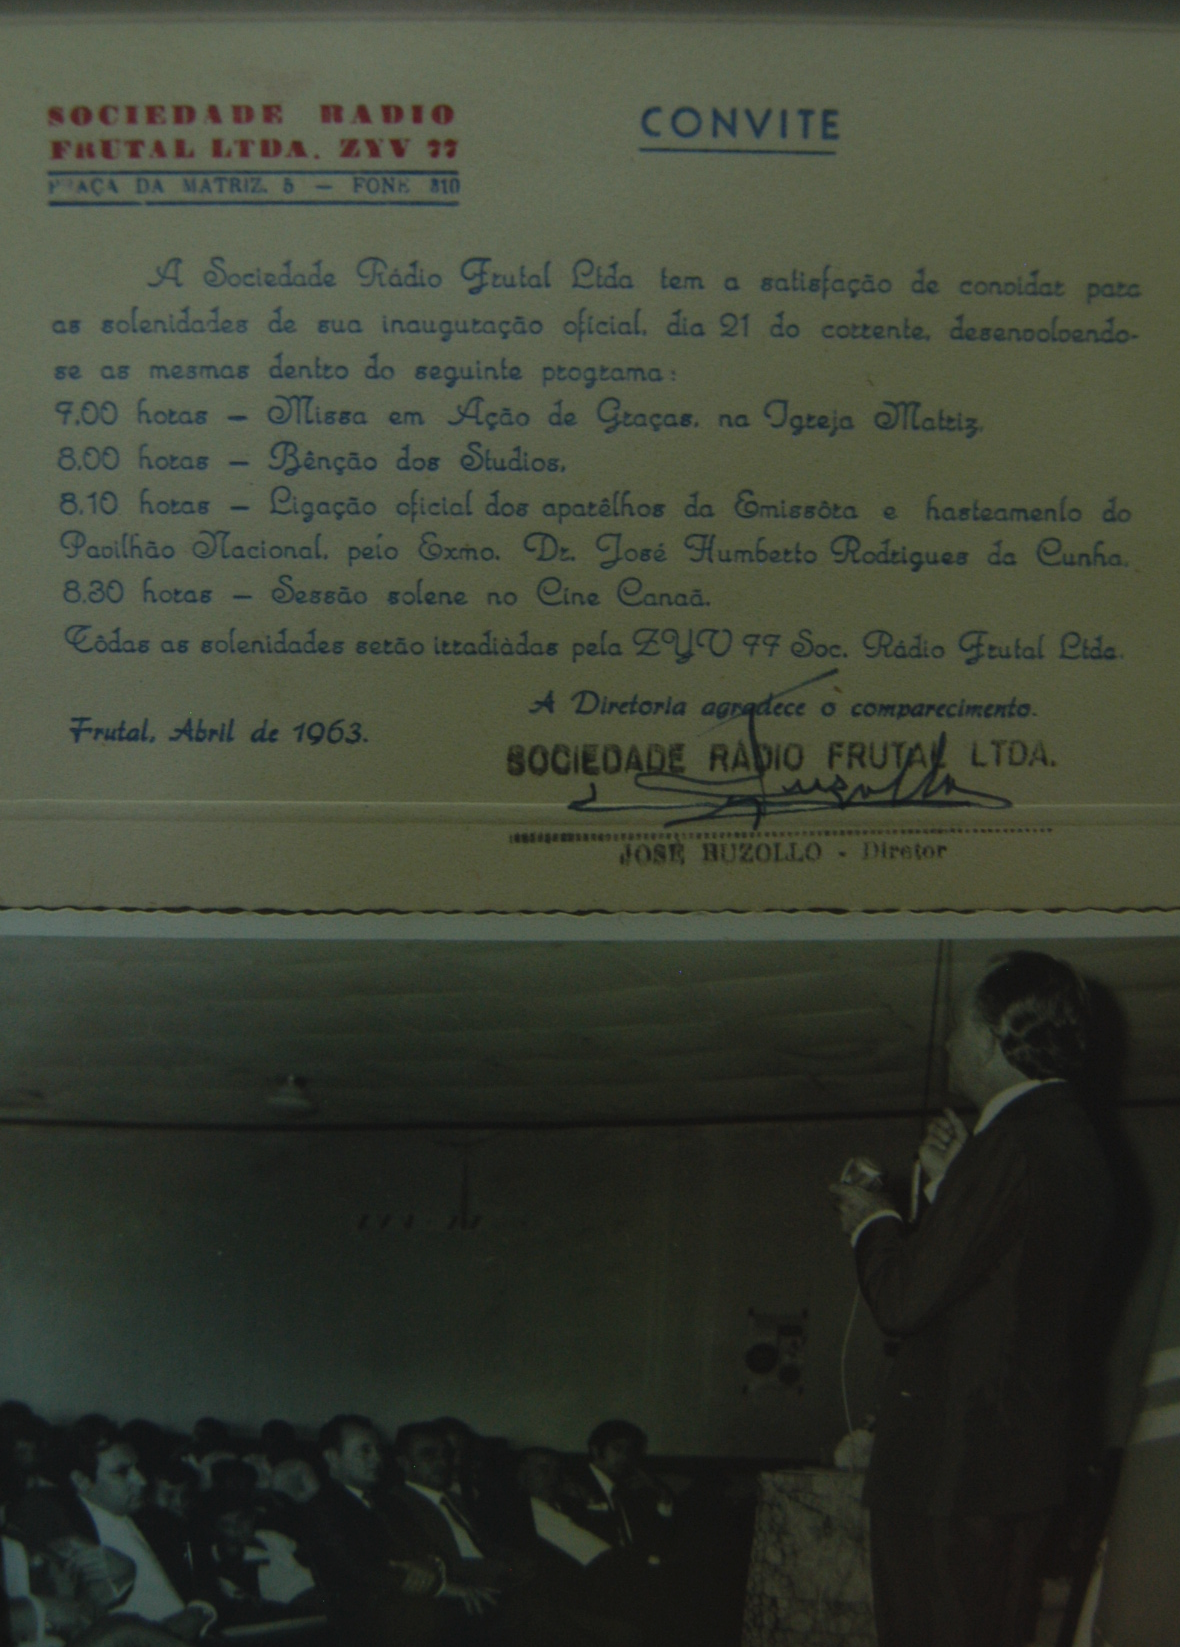 SOCIEDADE RADIO
FRUTAL LTDA. ZYV 77
PRAÇA DA MATRIZ, 5 — FONE 310
CONVITE
A Sociedade Rádio Frutal Ltda tem a satisfação de convidar para
as solenidades de sua inauguração oficial, dia 21 do corrente, desenvolvendo-
se as mesmas dentro do seguinte programa:
7,00 horas — Missa em Ação de Graças, na Igreja Matriz,
8,00 horas — Bênção dos Studios,
8,10 horas — Ligação oficial dos aparêlhos da Emissôra e hasteamento do
Pavilhão Nacional, pelo Exmo. Dr. José Humberto Rodrigues da Cunha.
8,30 horas — Sessão solene no Cine Canaã.
Tôdas as solenidades serão irradiàdas pela ZYV 77 Soc. Rádio Frutal Ltda.
A Diretoria agradece o comparecimento.
Frutal, Abril de 1963.
SOCIEDADE RÁDIO FRUTAL LTDA.
JOSÉ BUZOLLO - Diretor